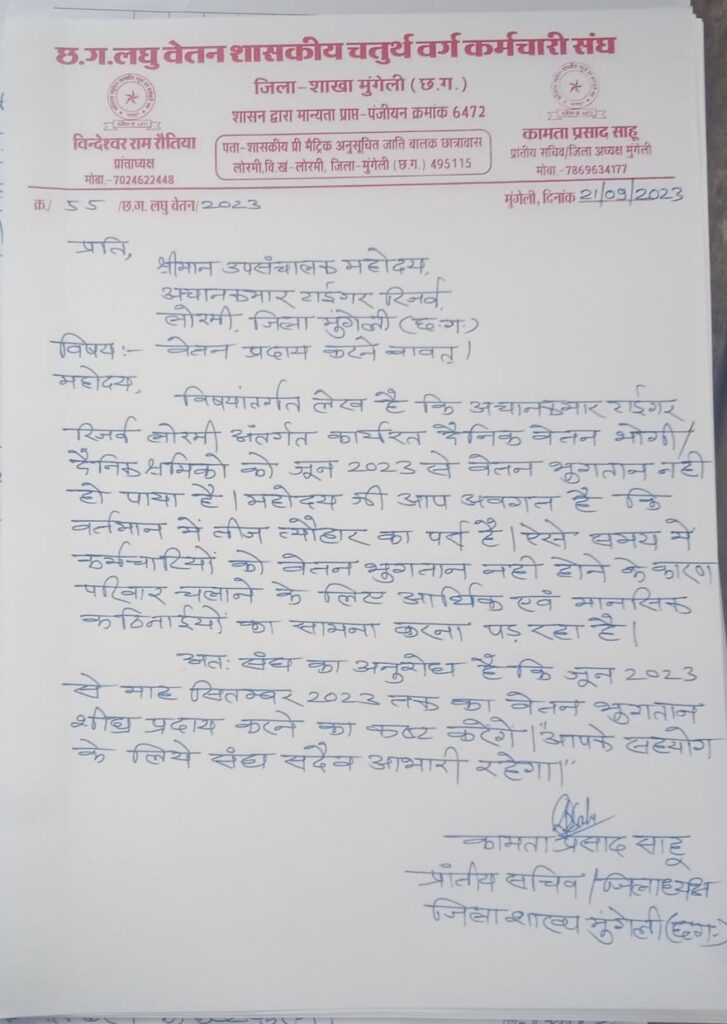 छ.ग.लघु वेतन शासकीय चतुर्थ वर्ग कर्मचारी संघ
जिला-शाखा मुंगेली (छ.ग.)
शासन द्वारा मान्यता प्राप्त-पंजीयन क्रमांक 6472
विन्देश्वर राम रौतिया
प्रांताध्यक्ष
मोबा.-7024622448
पता-शासकीय प्री मैट्रिक अनुसूचित जाति बालक छात्रावास
लोरमी,वि.खं-लोरमी, जिला-मुंगेली (छ.ग.) 495115
कामता प्रसाद साहू
प्रांतीय सचिव/जिला अध्यक्ष मुंगेली
मोबा.-7869634177
क्र./ 55 /छ.ग. लघु वेतन/2023
मुंगेली, दिनांक 21/09/2023
प्रति,
श्रीमान उपसंचालक महोदय,
अचानकमार टाईगर रिजर्व,
लोरमी, जिला मुंगेली (छ.ग.)
विषय:- वेतन प्रदाय करने बावत्।
महोदय,
विषयांतर्गत लेख है कि अचानकमार टाईगर
रिजर्व लोरमी अंतर्गत कार्यरत दैनिक वेतन भोगी/
दैनिक श्रमिको को जून 2023 से वेतन भुगतान नही
हो पाया है। महोदय जी आप अवगत है कि
वर्तमान में तीज त्यौहार का पर्व है। ऐसे समय मे
कर्मचारियों को वेतन भुगतान नही होने के कारण
परिवार चलाने के लिए आर्थिक एवं मानसिक
कठिनाईयों का सामना करना पड़ रहा है।
अत: संघ का अनुरोध है कि जून 2023
से माह सितम्बर 2023 तक का वेतन भुगतान
शीघ्र प्रदाय करने का कष्ट करेंगे। "आपके सहयोग
के लिये संघ सदैव आभारी रहेगा।"
कामता प्रसाद साहू
प्रांतीय सचिव/जिलाध्यक्ष
जिला शाखा मुंगेली (छ.ग.)